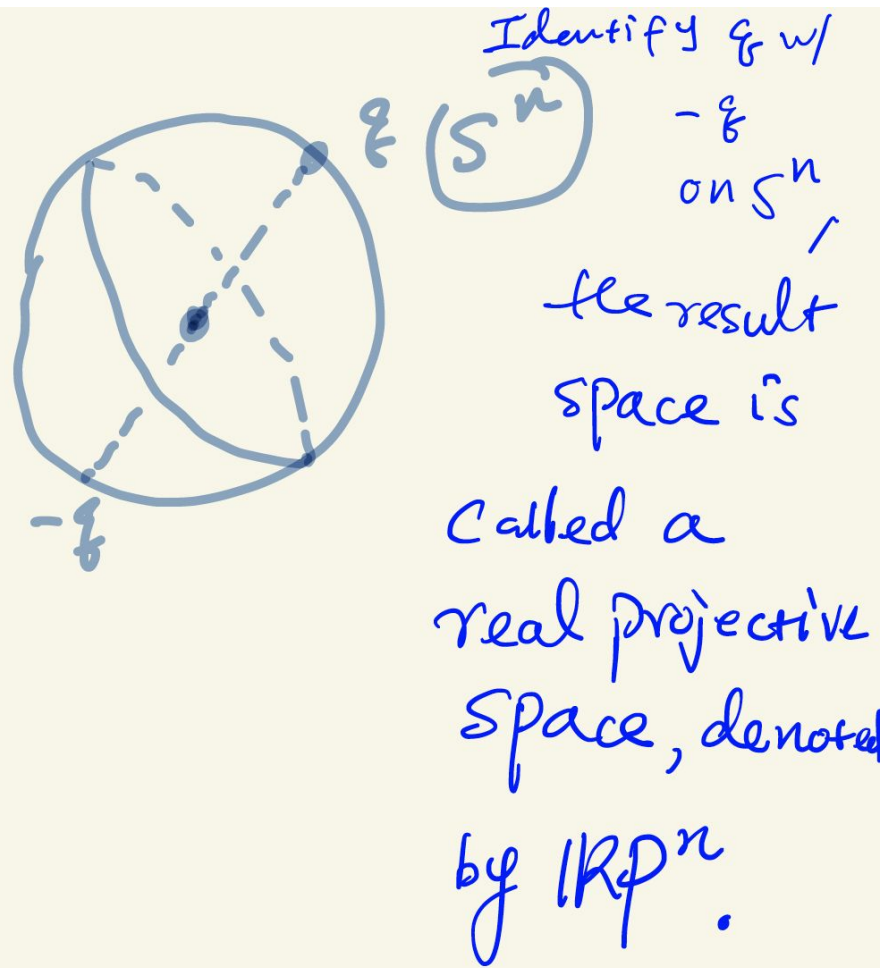 Identify q w/
q S^n
-q
on S^n,
the result
space is
-q
Called a
real projective
space, denoted
by ℝP^n.